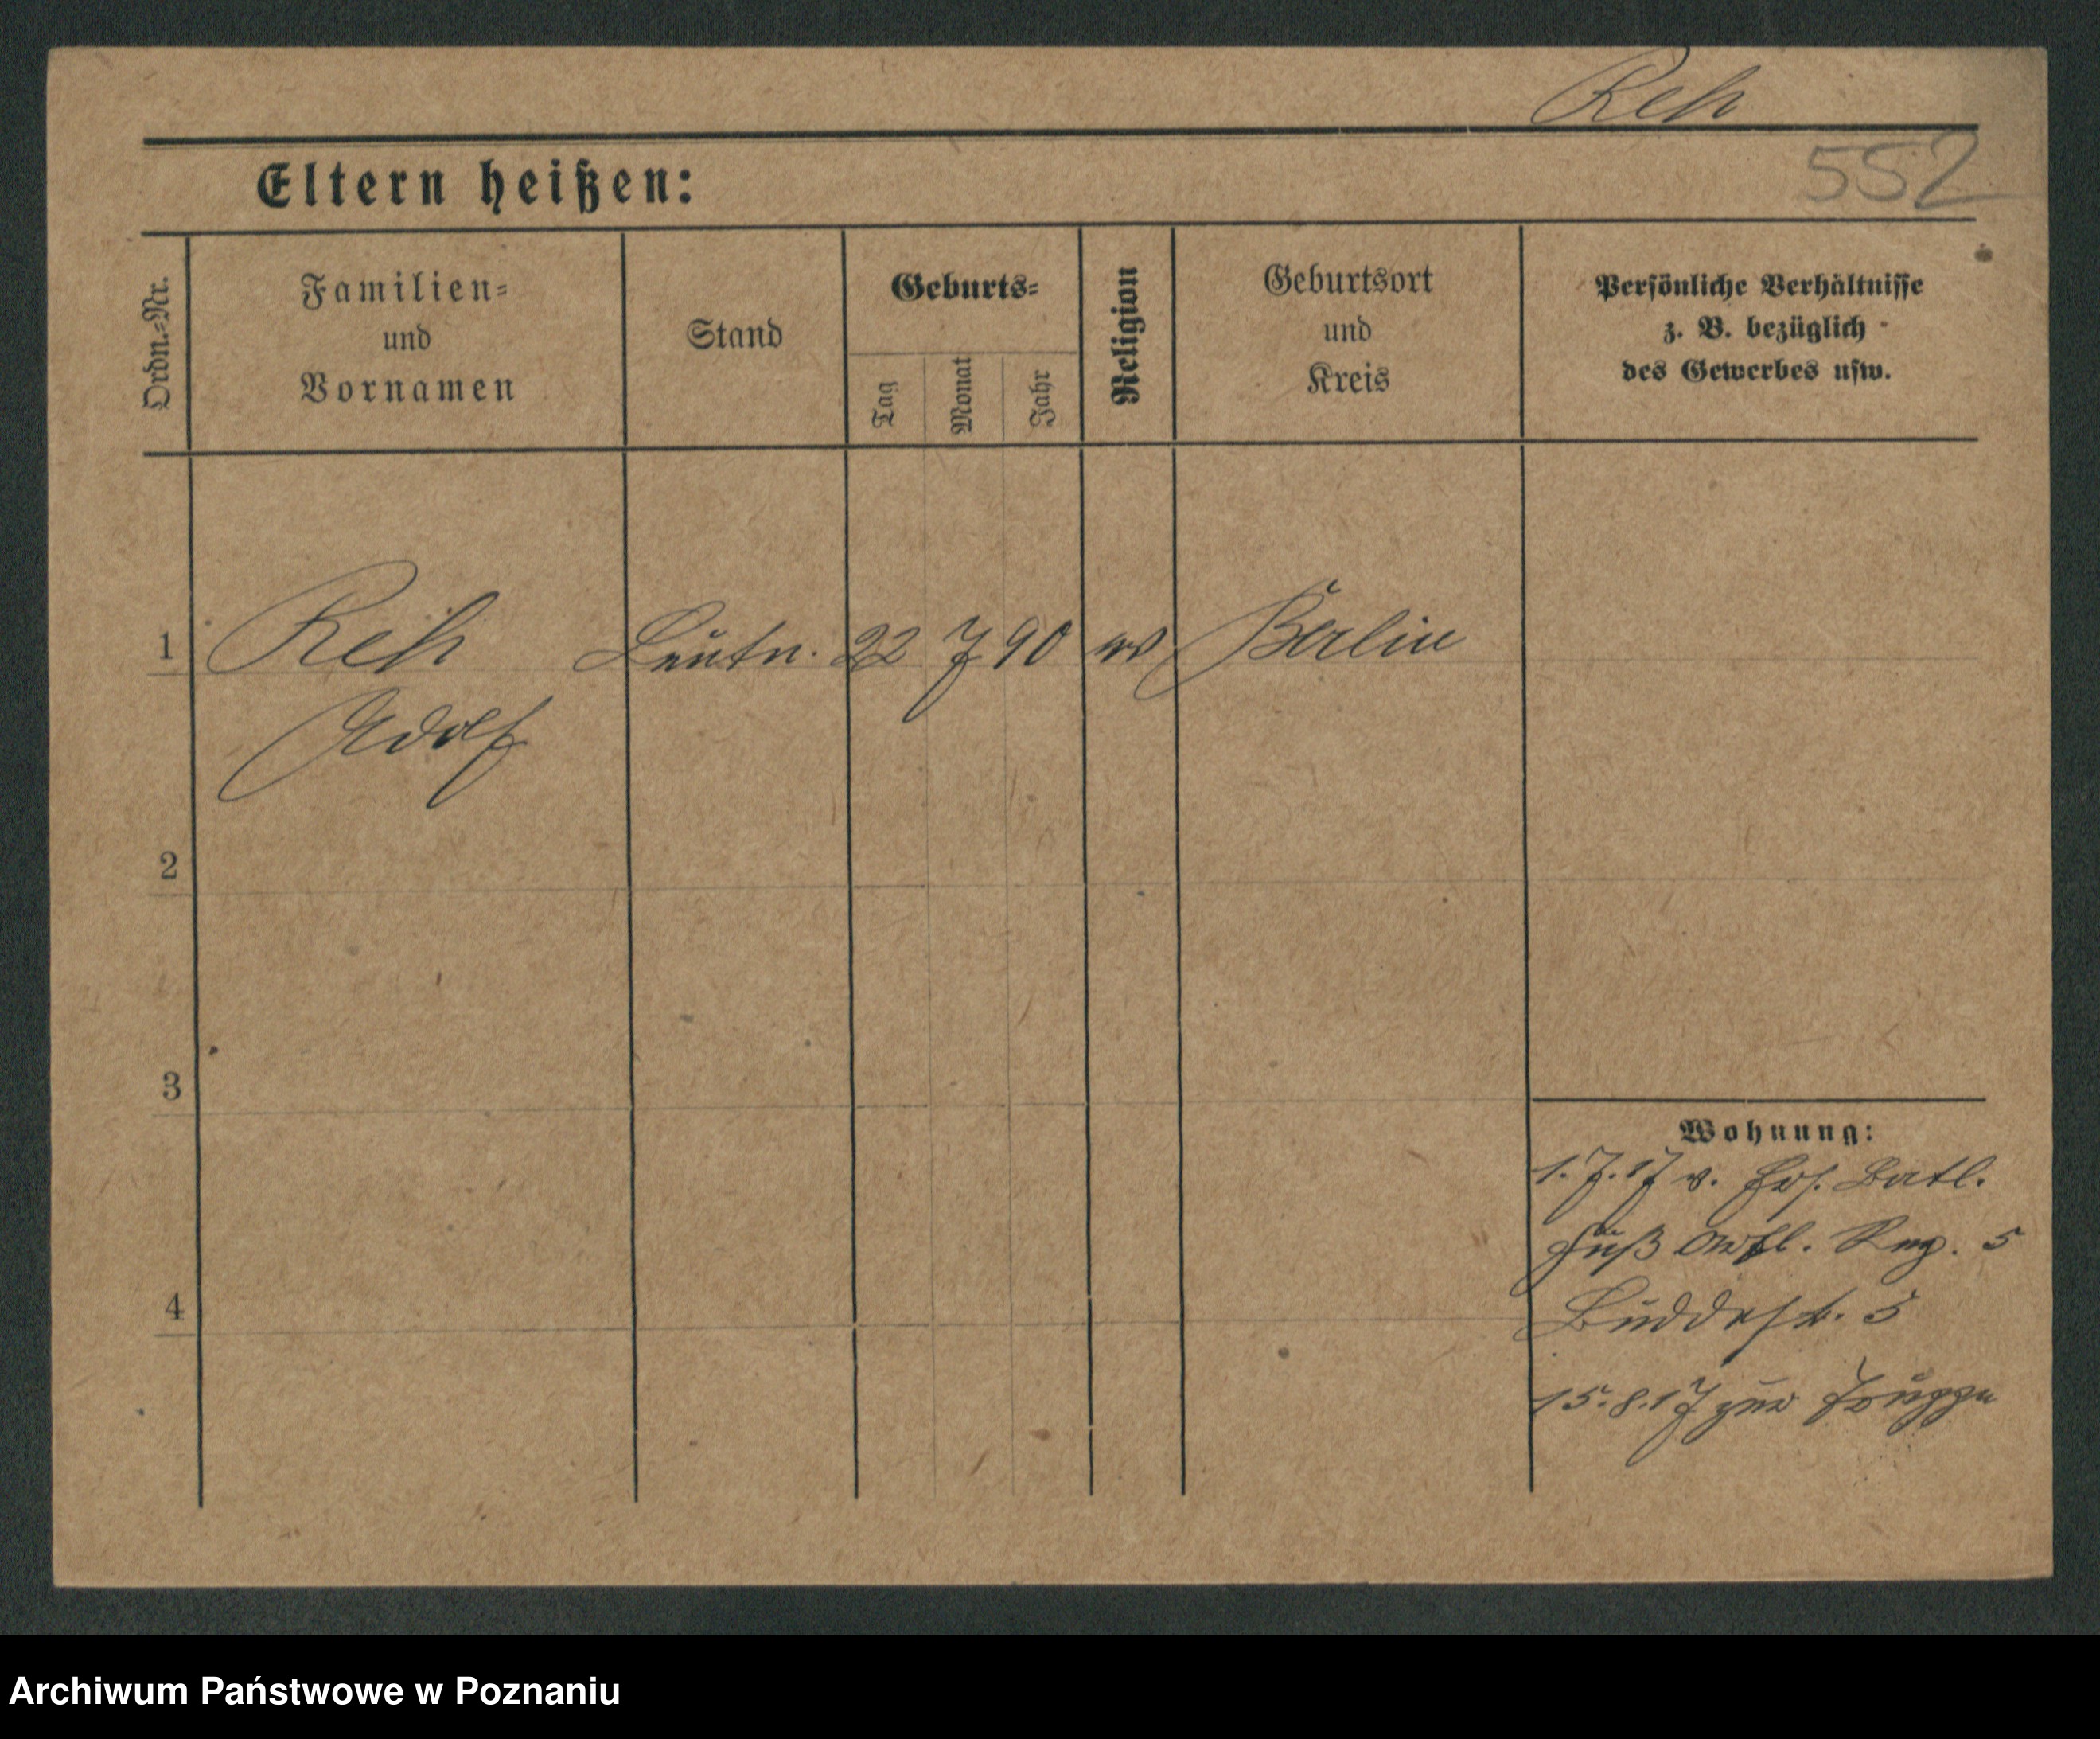 Reh
552
Eltern heißen:
Ordn.-Nr.
Familien- und Vornamen
Stand
Geburts-
Tag
Monat
Jahr
Religion
Geburtsort und Kreis
Persönliche Verhältnisse
z. B. bezüglich
des Gewerbes usw.
1 Reh Leutn. 22 7 90 ev Berlin
Adolf
2
3
4
Wohnung:
1.7.17 v. Ers. Batl.
Fuß Artl. Reg. 5
Buddestr. 5
15.8.17 zur Truppe
Archiwum Państwowe w Poznaniu